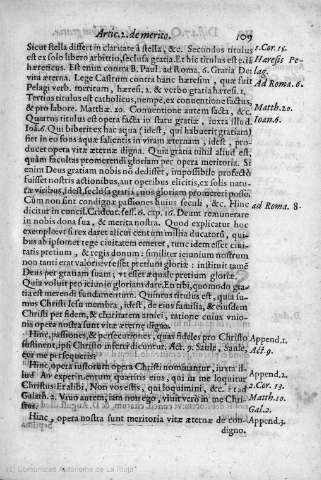 Artic. 2. de merito. 109
Sicut stella differt in claritate à stella, &c. Secundus titulus 1. Cor. 15.
est ex solo libero arbitrio, seclusa gratia. Et hic titulus est Hæresis Pe-
hæreticus. Est enim contra B. Paul. ad Rom. 6. Gratia Dei lag.
vita æterna. Lege Castrum contra hanc hæresim, quæ fuit Ad Roma. 6.
Pelagi verb. meritum, hæresi. 1. & verbo gratia hæresi. 1.
Tertius titulus est catholicus, nempe, ex conuentione factus,
& pro labore. Matthæ. 20. Conuentione autem facta, &c. Matth. 20.
Quartus titulus est opera facta in statu gratiæ, iuxta illud. Ioan. 6.
Ioã. 6. Qui biberit ex hac aqua (idest, qui habuerit gratiam)
fiet in eo fons aquæ salientis in vitam æternam, idest, pro-
ducet opera vitæ æternæ digna. Quia gratia nihil aliud est,
quàm facultas promerendi gloriam per opera meritoria. Si
enim Deus gratiam nobis nõ dedisset, impossibile profectò
fuisset nostris actionibus, aut operibus elicitis, ex solis natu-
ræ viribus, idest, seclusa gratia, nos gloriam promereri posse.
Cum non sint condignæ passiones huius seculi, &c. Hinc ad Roma. 8.
dicitur in concil. Trident. sess. 6. cap. 16. Deum remunerare
in nobis dona sua, & merita nostra. Quod explicatur hoc
exemplo: si rex daret alicui centum millia ducatorũ, qui-
bus ab ipsomet rege ciuitatem emeret, tunc idem esset ciui-
tatis pretium, & regis donum: similiter ieiunium nostrum
non tanti erat valoris,
Deus per gratiam suam, vt esset æquale pretium gloriæ.
Quia voluit pro ieiunio gloriam dare. Et tibi, quomodo gra-
tia est merendi fundamentum. Quintus titulus est, quia su-
mus Christi Iesu membra, idest, de eius familia, & eiusdem
Christi per fidem, & charitatem amici, ratione cuius vnio-
nis opera nostra sunt vitæ æternæ digna.
Hinc, passiones, & persecutiones, quas fideles pro Christo Append. 1.
sustinent, ipsi Christo inferre dicuntur. Act. 9. Saule, Saule, Act. 9.
cur me persequeris?
Hinc, opera iustorum opera Christi nominantur, iuxta il- Append. 2.
lud. An experimentum quæritis eius, qui in me loquitur 2. Cor. 13.
Christus. Et alibi, Non vos estis, qui loquimini, &c. Et ad Matth. 10.
Galath. 2. Viuo autem, iam non ego, viuit verò in me Chri- Gal. 2.
stus.
Hinc, opera nostra sunt meritoria vitæ æternæ de con- Append. 3.
digno.
(c) Comunidad Autónoma de La Rioja